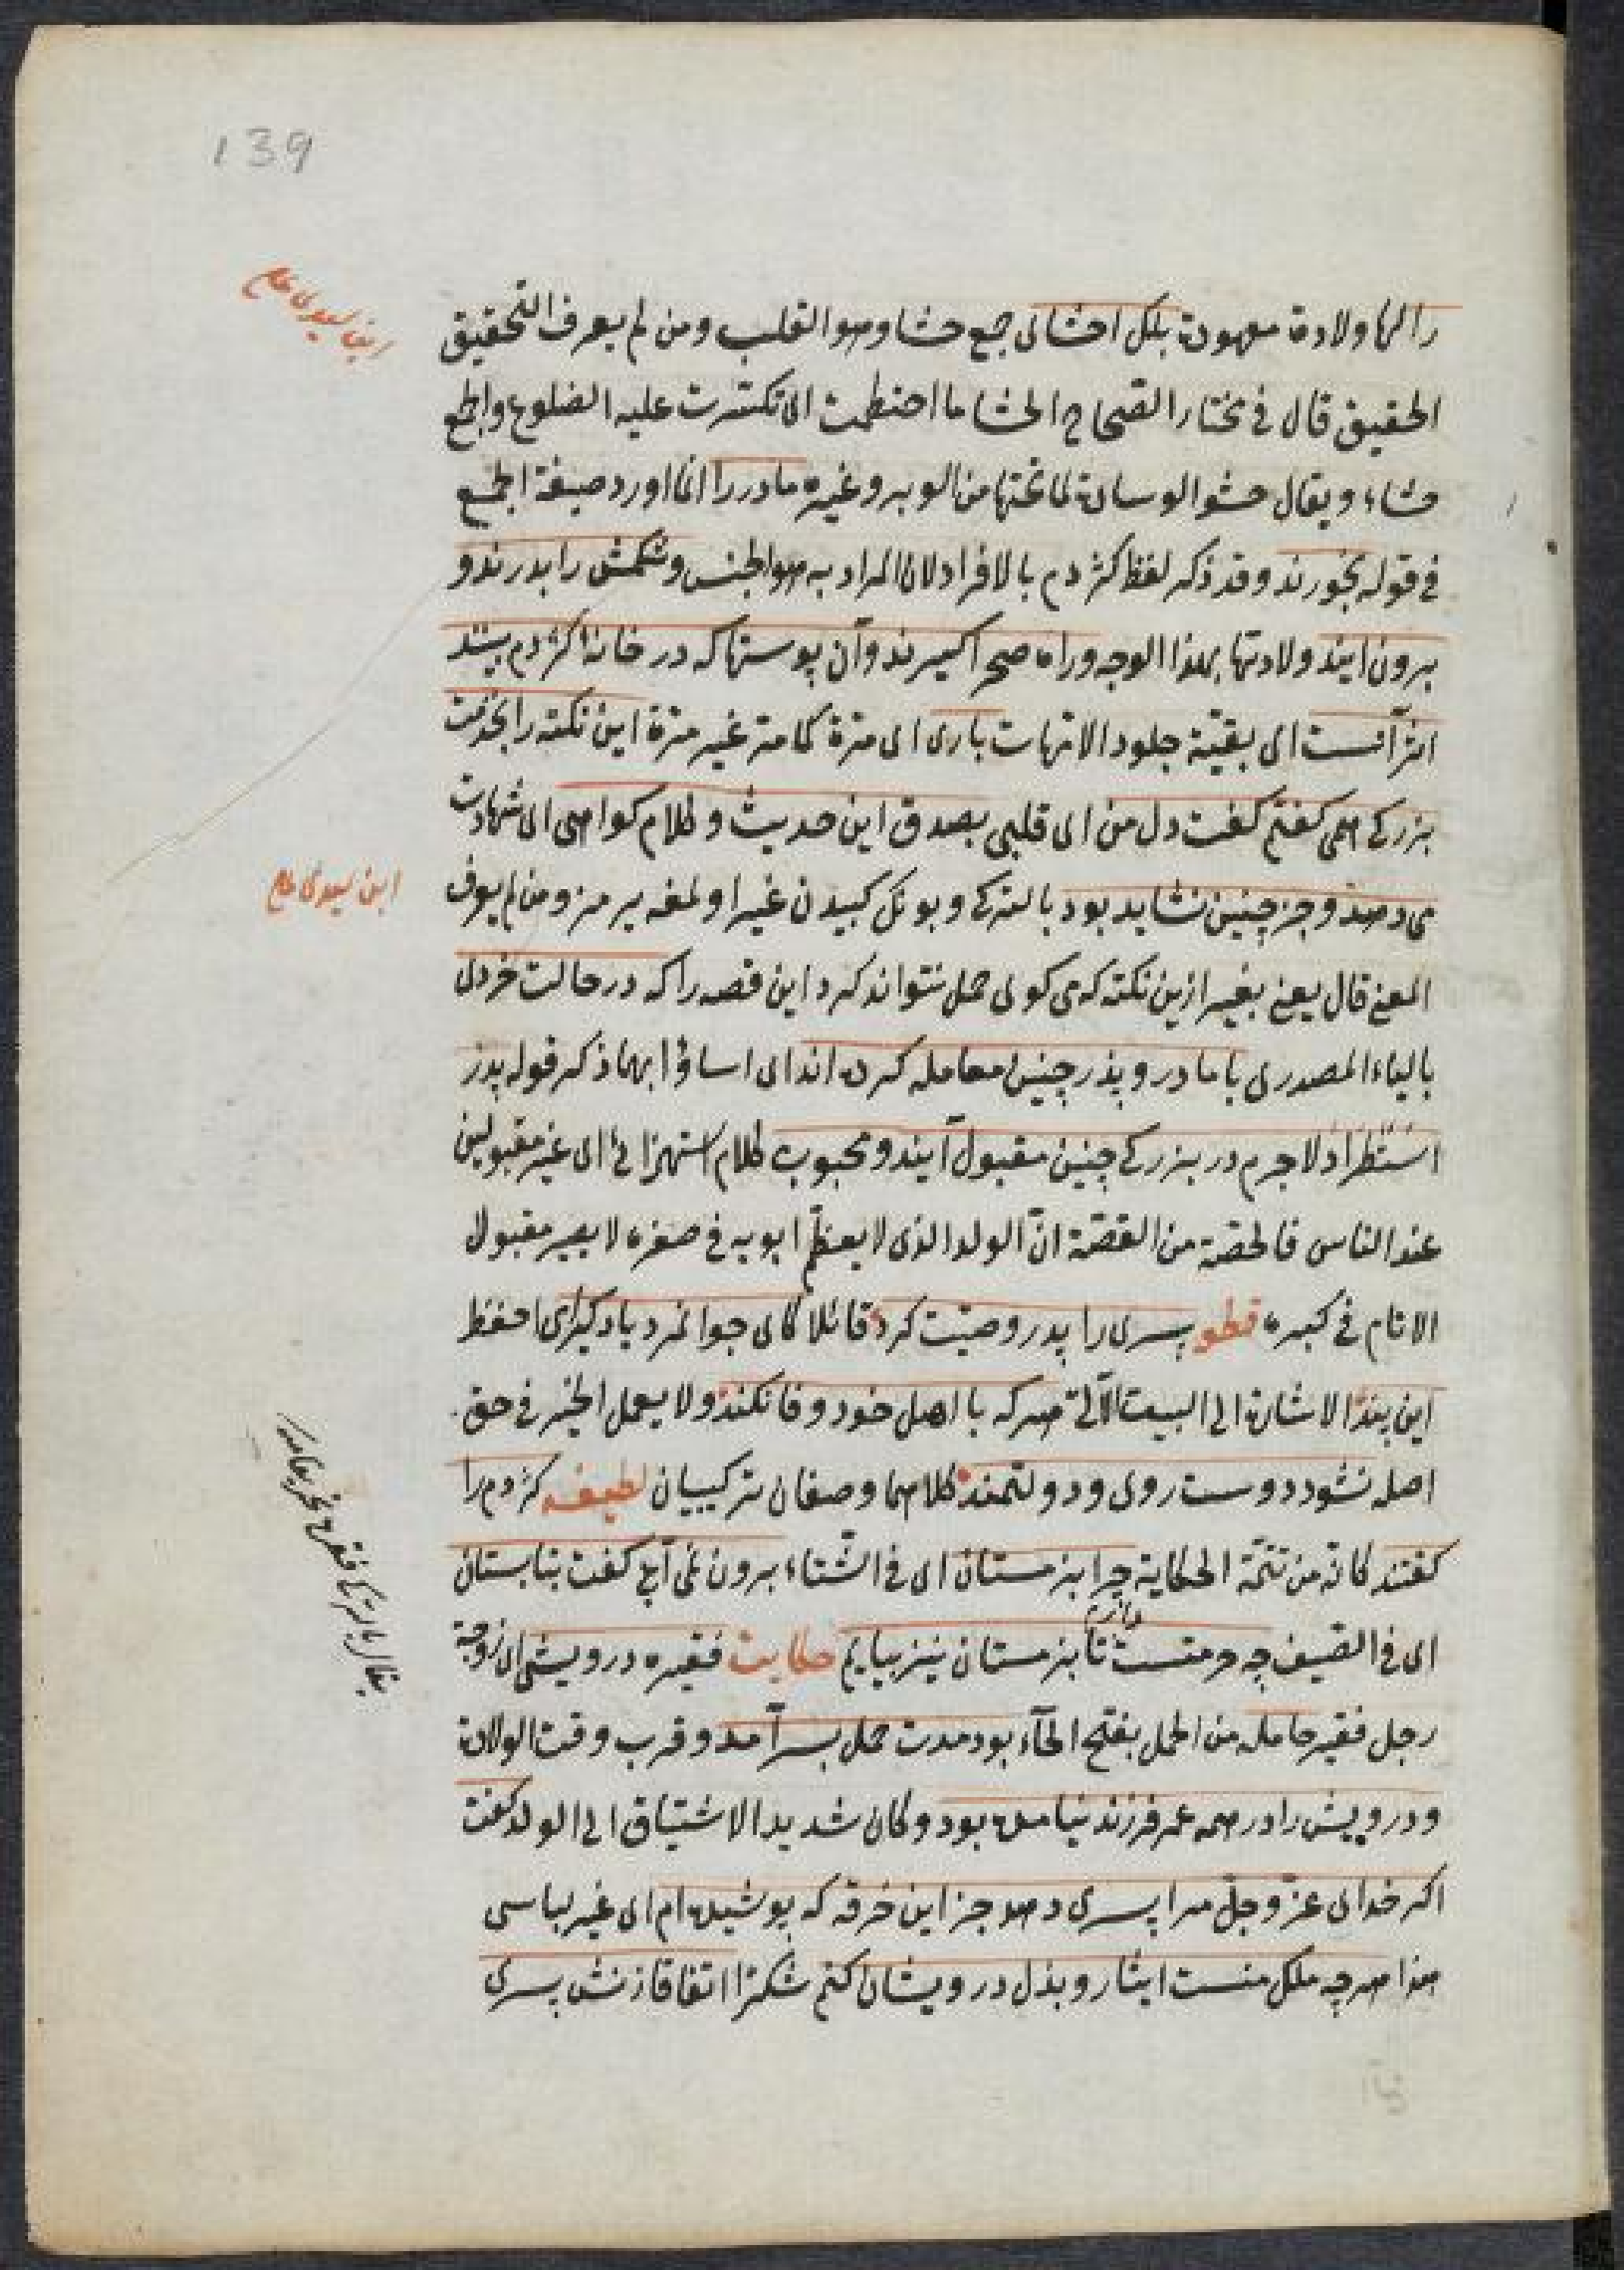 139
را لها ولادة معهودة بلكل احشاى جمع حشا وهو القلب ومن لم يعرف التحقيق
الحقيق قال فى مختار الصحاح الحشا ما اضطمت اى تكسرت عليه الضلوع والجمع
حشاء ويقال حشو الوسادة لما تحتها من الوبر وغيره مادر را انما اورد صيغة الجمع
فى قوله بخورند وقد ذكر لفظ كژدم بالافراد لان المراد به هو الجنس وشكمش را بدرند و
برون ايند ولادتها بهذا الوجه وراه صحرا كيرند وآن پوستها كه در خانۀ كژدم بينند
اثر آنست اى بقيّة جلود الامهات بارى اى مرّة كامة غير مرّة اين نكته را بخدمت
بزركى همى كفتم كفت دل من اى قلبى بصدق اين حديث وكلام كواهى اى شهادت
مى دهد وجز چنين نشايد بود بالتركى و بونك كبيدن غيرا ولمغه ير مز ومن لم يعرف
المعنى قال يعنى بغير ازين نكته كه مى كوئى حمل نتواند كرد اين قصه را كه در حالت خردى
بالياء المصدرى با مادر وپذر چنين معامله كرده اند اى اساؤا بهما ذكر قوله پدر
استطرادا لاجرم در بزركى چنين مقبول آيند ومحبوب كلام استهزائى اى غير مقبولين
عند الناس فالحصة من القصّة انّ الولد الذى لا يعظّم ابويه فى صغره لا يصير مقبول
الانام فى كبره قطعه پسرى را پدر وصيّت كرد قائلا كاى جوانمرد ياد كير اى احفظ
اين پند الاشارة الى البيت الآتى هركه با اهل خود وفا نكند ولا يعمل الخير فى حق
اصله نشود دوست روى ودولتمند كلاهما وصفان تركيبيان لطيفه كژدم را
كفتند كانّه من تتمّة الحكاية چرا بزمستان اى فى الشّتاء برون نمى آيى كفت بتابستان
اى فى الصيف چه حرمتست دارم تا بزمستان نيز بيايم حكايت فقيره درويشى اى زوجة
رجل فقير حامله من الحمل بفتح الحآء بود مدت حمل بسرآمد وقرب وقت الولادة
ودرويش را درهمه عمر فرزند نيامده بود وكان شديد الاشتياق الى الولد كفت
اكر خداى عزّ وجلّ مرا پسرى دهد جز اين خرقه كه پوشيده ام اى غير لباسى
هذا هرچه ملك منست ايثار وبذل درويشان كنم شكرا اتفاقا زنش پسرى
ابن سيدى على